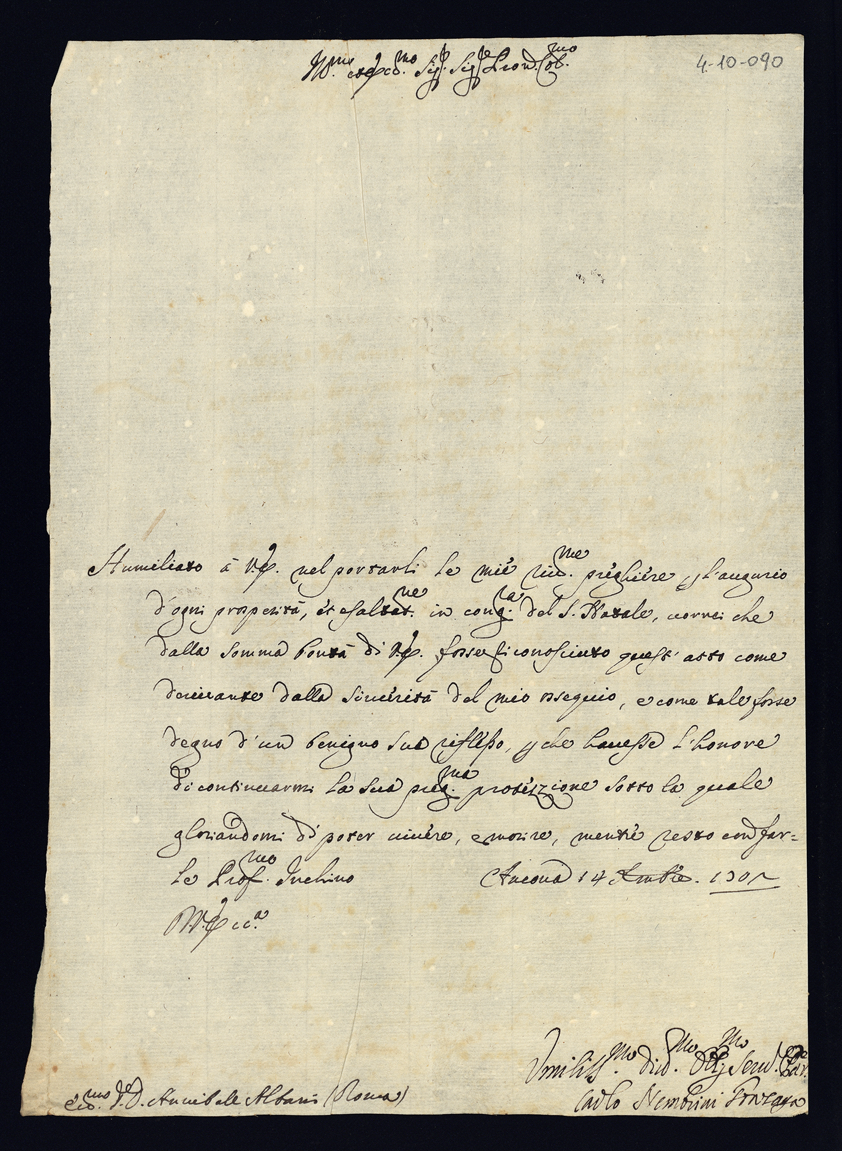 Ill.mo et Ecc.mo Sig.r Sig.r Pron. Col.mo
4-10-090
Humiliato à V.E. nel portarli le mie um.me preghiere p l'augurio
d'ogni prosperità, et esaltat.ne in cong.ra del S. Natale, vorrei che
dalla somma bontà di V.E. fosse riconosciuto quest'atto come
derivante dalla sincerità del mio ossequio, e come tale fosse
degno d'un benigno suo riflesso, p che havesse l'honore
di continuarmi la sua preg.ma protezzione sotto la quale
gloriandomi di poter vivere, e morire, mentre resto con far=
le Prof.mo Inchino Ancona 14
V.E. cc.a
Umiliss.mo Div.mo Obl. Serv.
Carlo Nembrini Gonzaga
D. Annibale Albani (Roma)